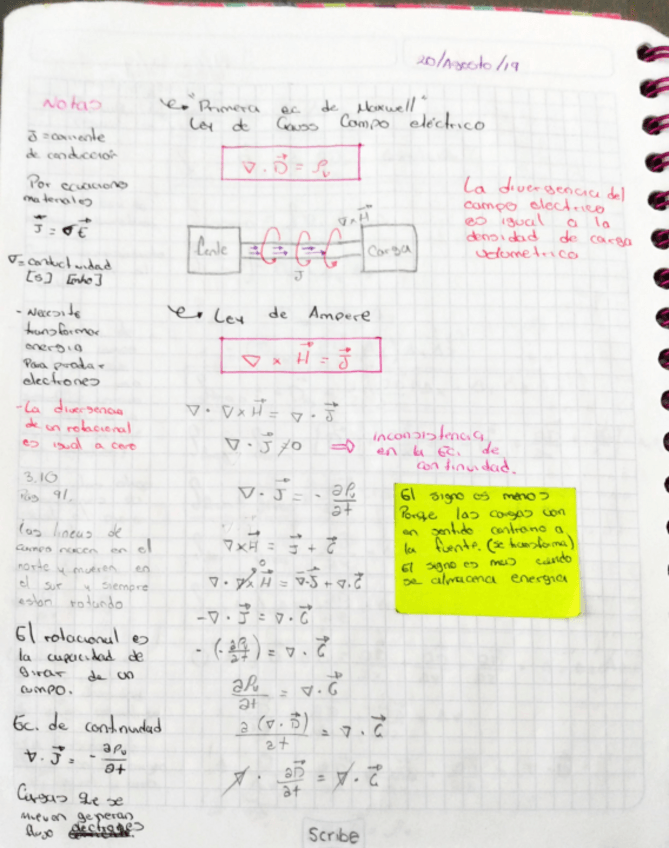 20/Agosto/19
Notas
J = corriente
de conducción
Por ecuaciones
materiales
J = σE
σ = conductividad
[S] [mho]
- Necesito
transformar
energia
Para
electrones
- La divergencia
de un rotacional
es igual a cero
3.10
Pag 91.
las lineas de
campo nacen en el
norte y mueren en
el sur y siempre
estan rotando
El rotacional es
la capacidad de
girar de un
campo.
Ec. de continuidad
∇ · J = - ∂ρv/∂t
Cargas que se
mueven generan
flujo electrones
"Primera ec. de Maxwell"
Ley de Gauss Campo eléctrico
∇ · D = ρv
La divergencia del
campo electrico
es igual a la
densidad de carga
volumetrica
∇ × H
Fente
Carga
J
Ley de Ampere
∇ × H = J
∇ · ∇ × H = ∇ · J
∇ · J ≠ 0 ⇒ inconsistencia
en la Ec. de
continuidad.
∇ · J = - ∂ρv/∂t
∇ × H = J + G
∇ · ∇ × H = ∇ · J + ∇ · G
0
-∇ · J = ∇ · G
- (- ∂ρv/∂t) = ∇ · G
∂ρv/∂t = ∇ · G
∂(∇ · D)/∂t = ∇ · G
∇ · ∂D/∂t = ∇ · G
El signo es menos
Porque las cargas van
en sentido contrario a
la fuente. (se transforma)
El signo es mas cuando
se almacena energia
Scribe